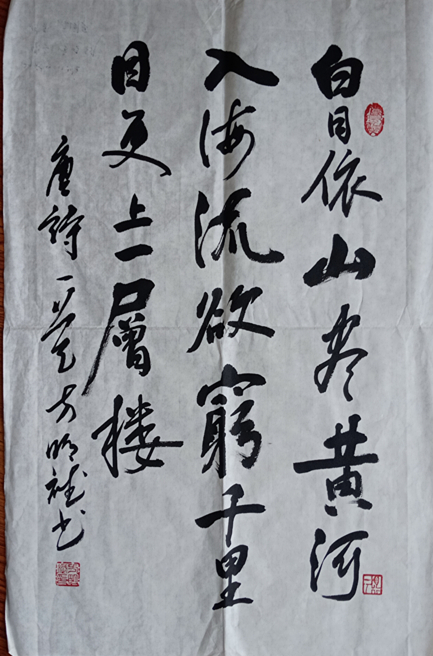 白日依山尽黄河
入海流欲窮千里
目更上一層楼
唐詩一首方明书